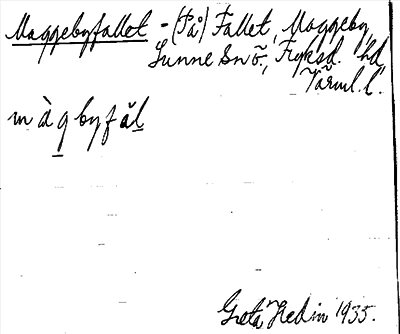 Maggebyfallet - (På) Fallet, Maggeby,
Sunne Sn ö., Fryksd. hd
Värml. l.
m à g b y f ă l
Greta Hedin 1935.